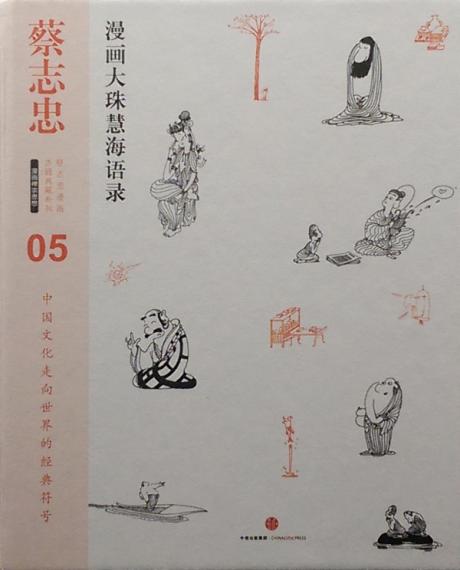 蔡志忠
漫画大珠慧海语录
蔡志忠漫画
古籍典藏系列
漫画禅宗思想
05
中国文化走向世界的经典符号
中信出版集团 | CHINACITICPRESS